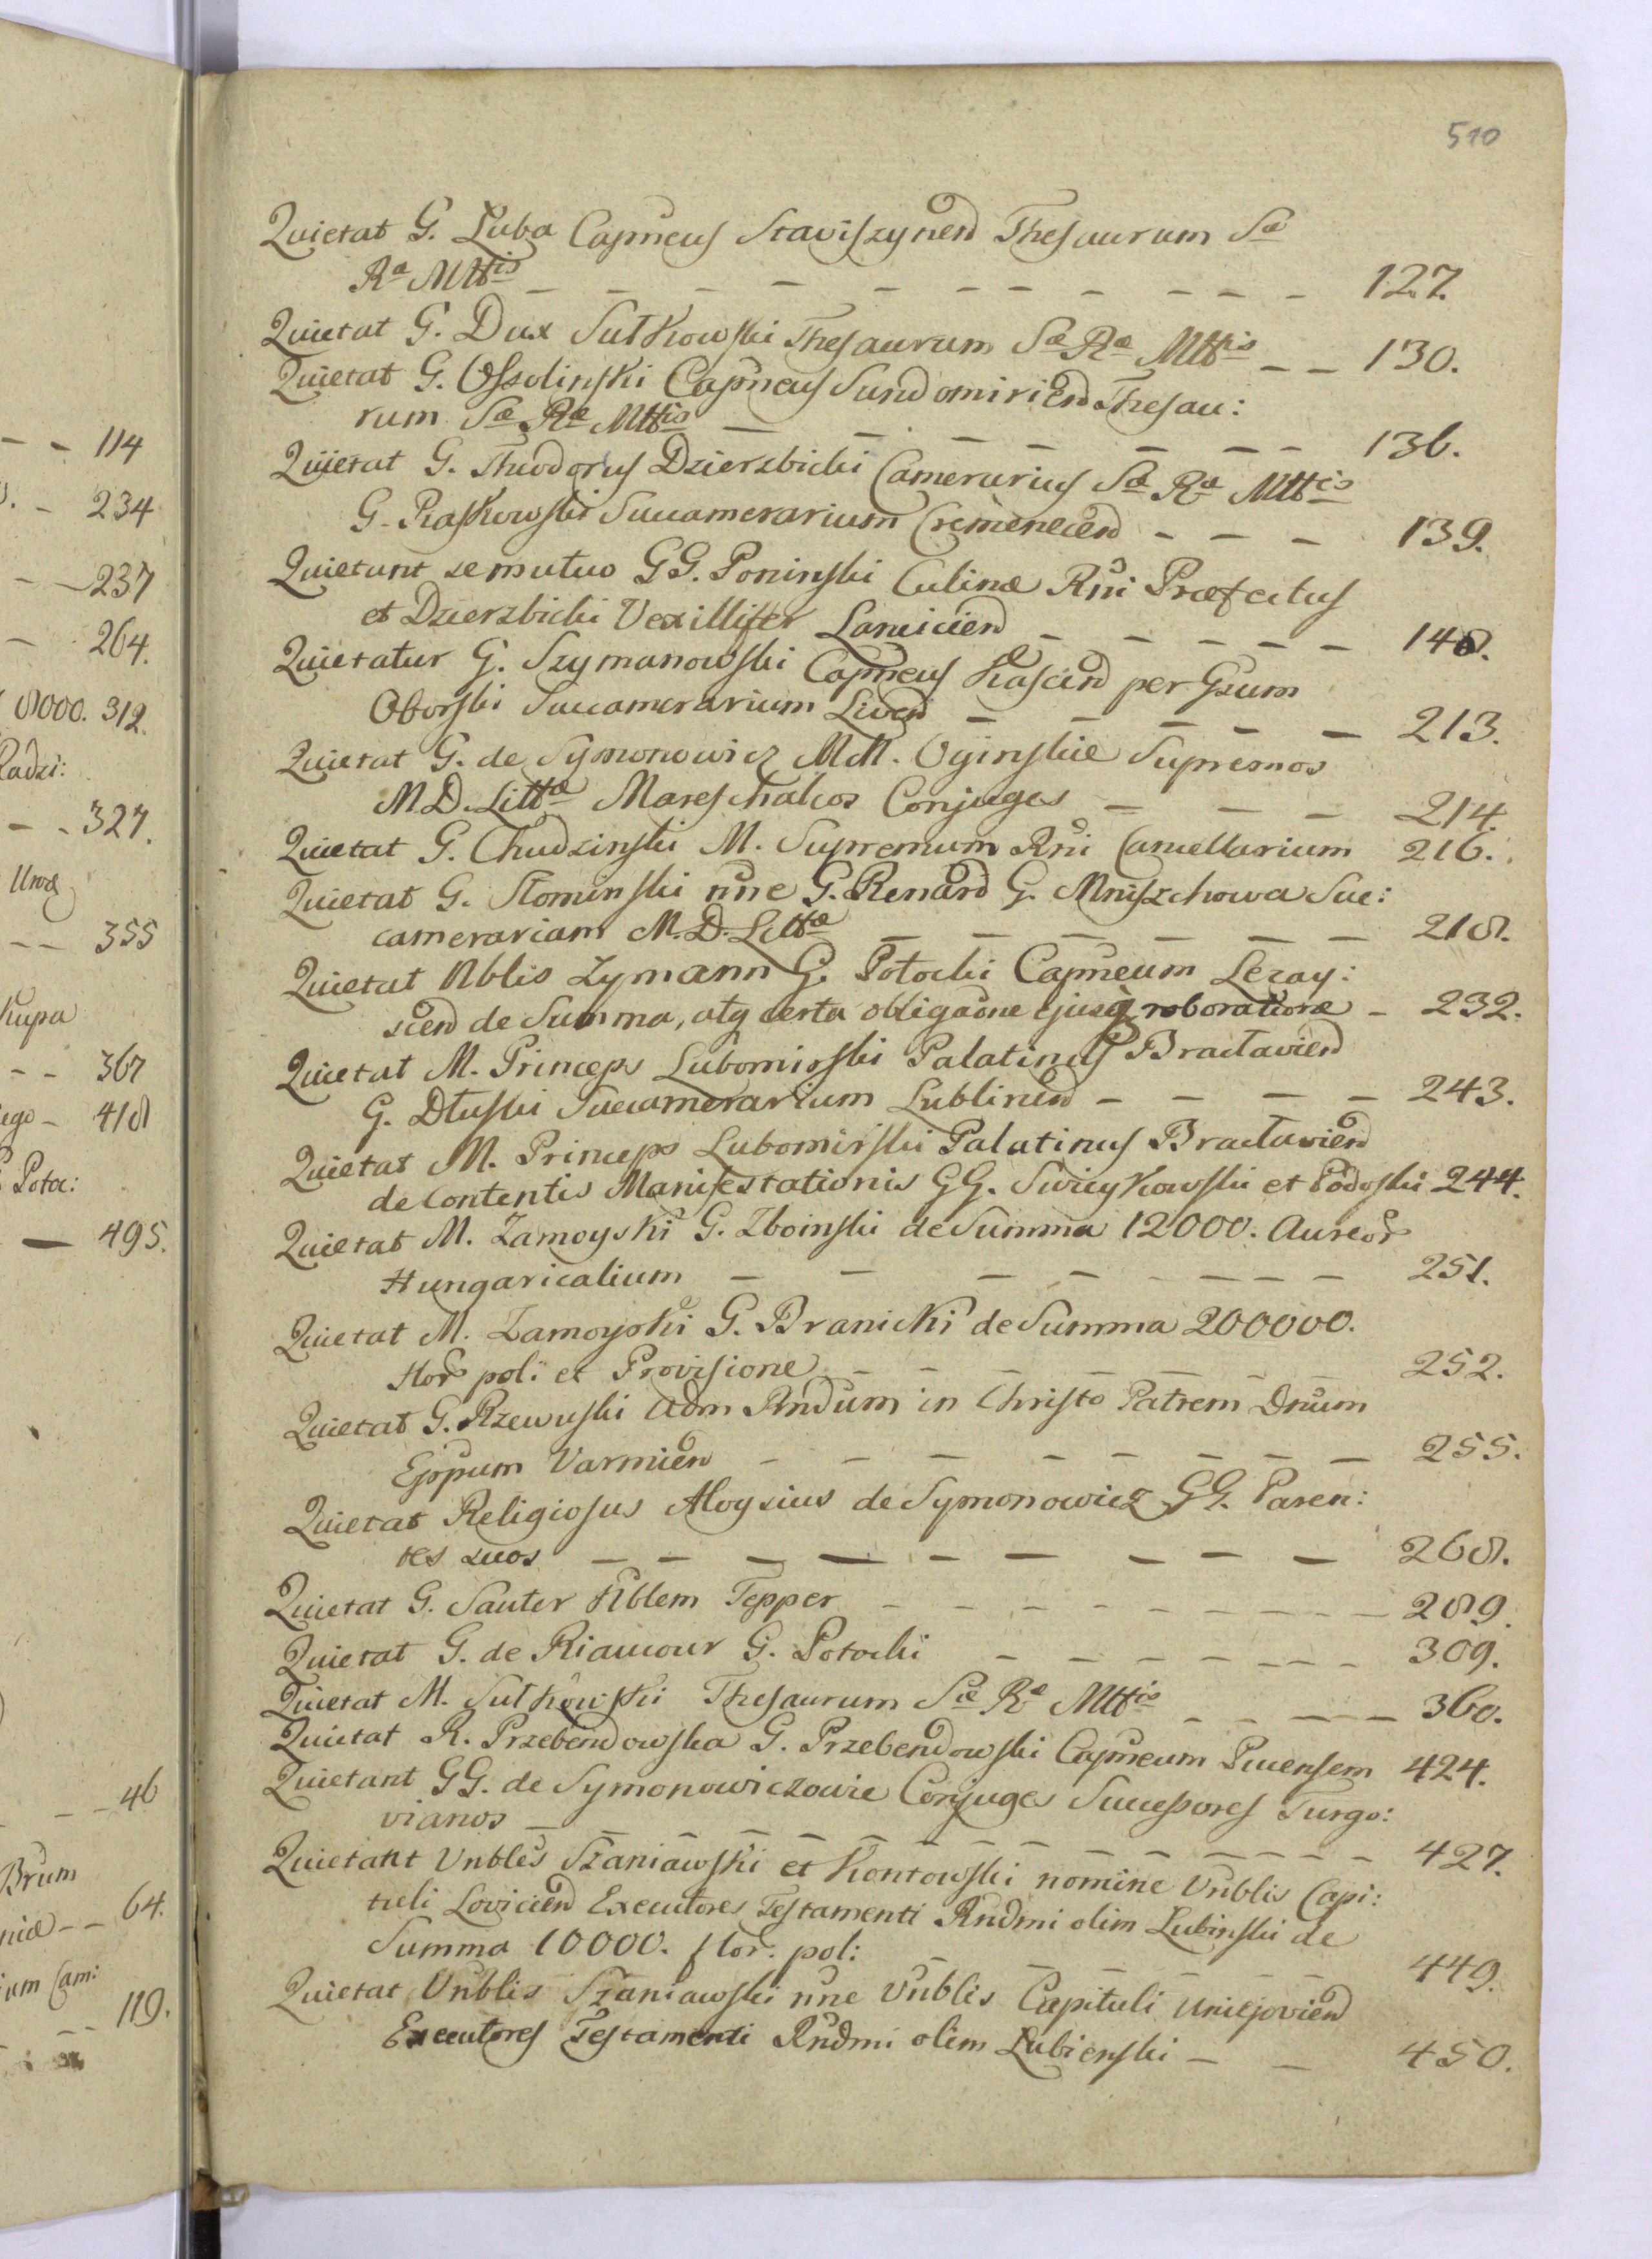 114
234
237
264.
8000. 312.
Radzi:
327.
Urod
355
Kupa
367
418
Potoc:
495.
46
Brum
64.
um Cam:
119.
510
Quietat G. Luba Capneus Staviszynen Thesaurum Sæ
Ræ Mttis 127.
Quietat G. Dux Sułkowski Thesaurum Sæ Ræ Mttis 130.
Quietat G. Ossolinski Capneus Sandomirien Thesau:
rum Sæ Ræ Mttis 136.
Quietat G. Theodorus Dzierzbicki Camerarius Sæ Ræ Mttis
G. Raszkowski Succamerarium Cremenecen 139.
Quietant se mutuo GG. Poninski Culinæ Rni Præfectus
et Dzierzbicki Vexillifer Lancicien 148.
Quietatur G. Szymanowski Capneus Kascien per Gsum
Oborski Succamerarium Liven 213.
Quietat G. de Symonowicz MM. Oginskie Supremos
M.D. Littæ Mareschalcos Conjuges 214.
Quietat G. Chudzinski M. Supremum Rni Cancellarium 216.
Quietat G. Słominski nne G. Renard G. Mniszchowa Suc:
camerariam M.D. Littæ 218.
Quietat Nblis Zymann G. Potocki Capneum Lezay:
scien de Summa, atq certa obligaone ejusq roboratione 232.
Quietat M. Princeps Lubomirski Palatinus Bractavien
G. Dłuski Succamerarium Lublinen 243.
Quietat M. Princeps Lubomirski Palatinus Bractavien
de Contentis Manifestationis GG. Swieykowski et Podoski 244.
Quietat M. Zamoyski G. Zboinski de Summa 12000. Aureor
Hungaricalium 251.
Quietat M. Zamoyski G. Branicki de Summa 200000.
flor pol: et Provisione 252.
Quietat G. Rzewuski Adm Rndum in Christo Patrem Dnum
Eppum Varmien 255.
Quietat Religiosus Aloysius de Symonowicz GG. Paren:
tes suos 268.
Quietat G. Sauter Nblem Tepper 289.
Quietat G. de Riaucour G. Potocki 309.
Quietat M. Sułkowski Thesaurum Sæ Ræ Mttis 360.
Quietat R. Przebendowska G. Przebendowski Capneum Pucensem 424.
Quietant GG. de Symonowiczowie Conjuges Successores Turgo:
vianos 427.
Quietant Vnbles Szaniawski et Kontowski nomine Vnblis Capi:
tuli Lovicien Executores Testamenti Rndmi olim Lubinski de
Summa 10000. flor. pol: 449.
Quietat Vnblis Szaniawski nne Vnblis Capituli Uniejovien
Executores Testamenti Rndmi olim Lubienski 450.